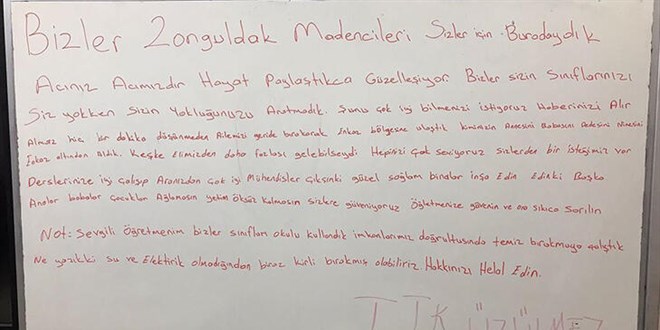 Bizler Zonguldak Madencileri Sizler için Buradaydık
Acınız Acımızdır Hayat Paylaştıkca Güzelleşiyor Bizler sizin Sınıflarınızı
Siz yokken Sizin Yokluğunuzu Aratmadık. Şunu çok iyi bilmenizi istiyoruz Haberinizi Alır
Almaz hiç bir dakika düşünmeden Ailemizi geride bırakarak Enkaz bölgesine ulaştık kimimizin Annesini Babasını Dedesini Ninesini
Enkaz altından Aldık. Keşke Elimizden daha fazlası gelebilseydi Hepinizi Çok Seviyoruz Sizlerden bir isteğimiz var
Derslerinize iyi çalışıp Aranızdan Çok iyi Mühendisler Çıksınki güzel sağlam binalar inşa Edin Edinki Başka
Analar babalar çocuklar Ağlamasın yetim öksüz kalmasın sizlere güveniyoruz Öğretmenize güvenin ve ona sıkıca Sarılın
Not: Sevgili Öğretmenim bizler sınıfları okulu kullandık imkanlarımız doğrultusunda temiz bırakmaya çalıştık
Ne yazıkki su ve Elektirik olmadığından biraz kirli bırakmış olabiliriz Hakkınızı Helal Edin.
TTK ÜZÜLMEZ